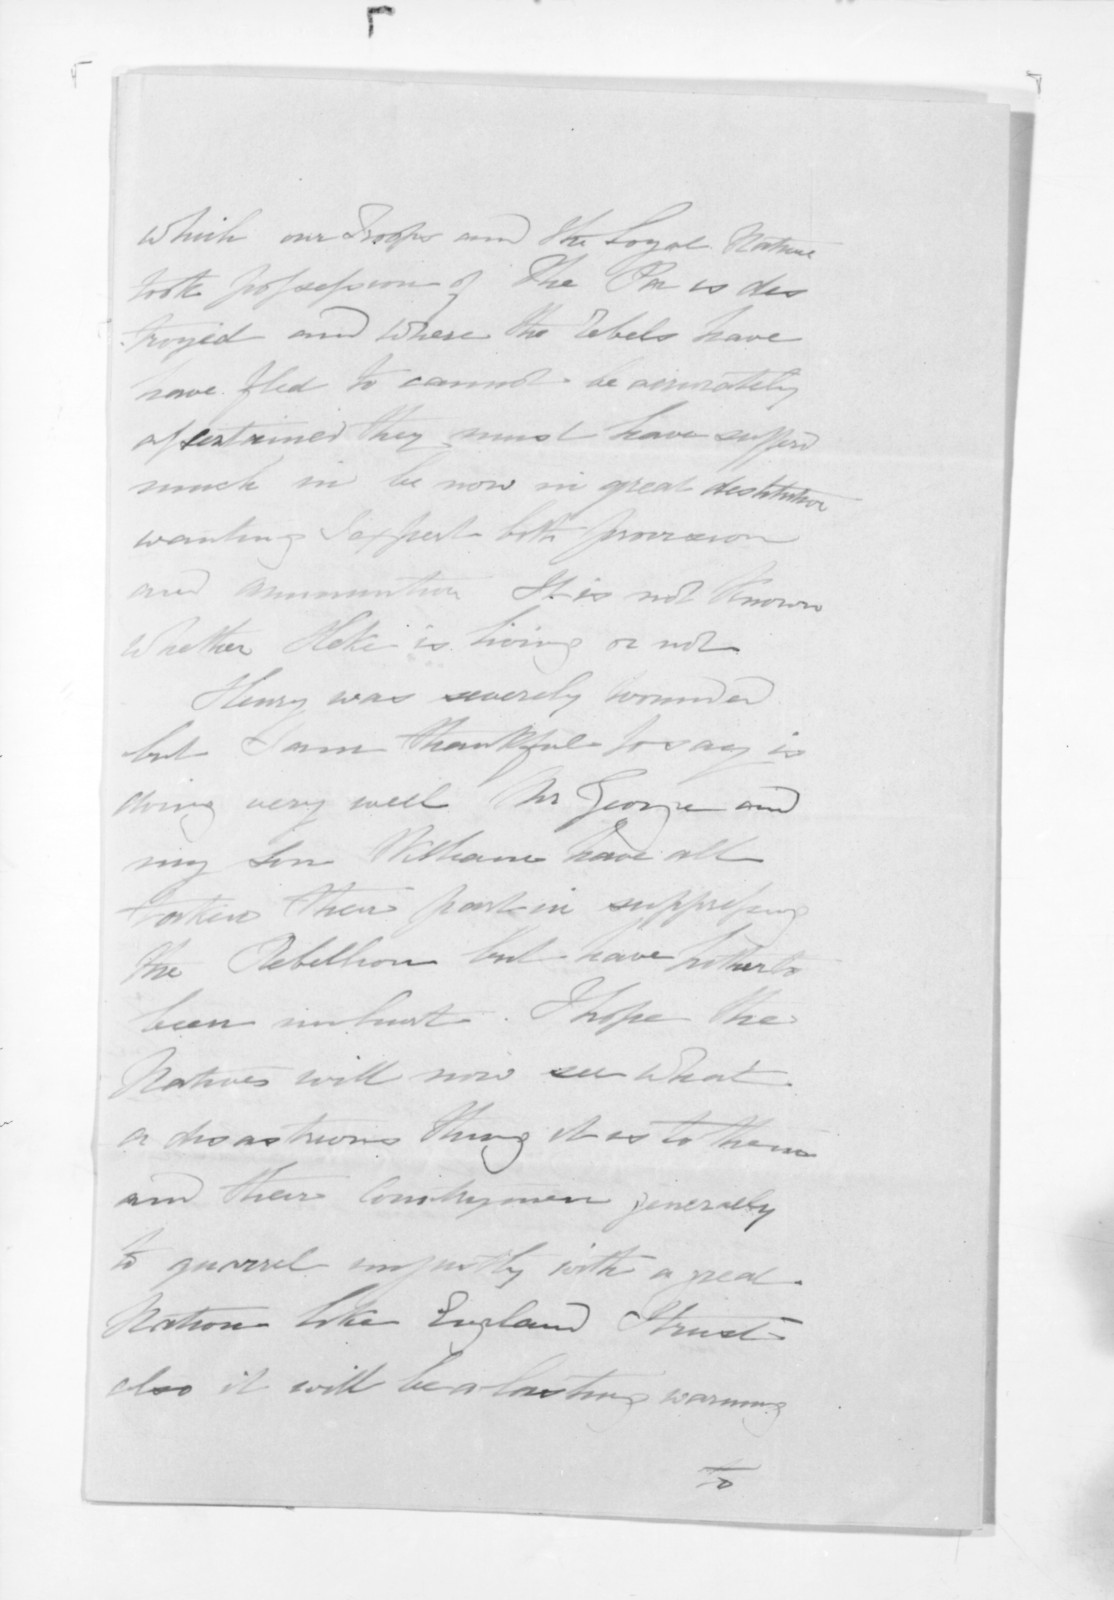 which our Troops and the Loyal Natives
took possession of The Pa is des
troyed and where the rebels have
have fled to cannot be accurately
assertained they must have sufferd
much in be now in great destitution
wanting I expect both provision
and ammunition It is not known
whether Heke is living or not
Henry was severely wounded
but I am thankful to say is
doing very well Mr George and
my Son William have all
taken their part in suppressing
the Rebellion but have hitherto
been unhurt. I hope the
Natives will now see what
a disastrous thing it is to them
and their Countrymen generally
to quarrel unjustly with a great
Nation like England I trust
also it will be a lasting warning
to